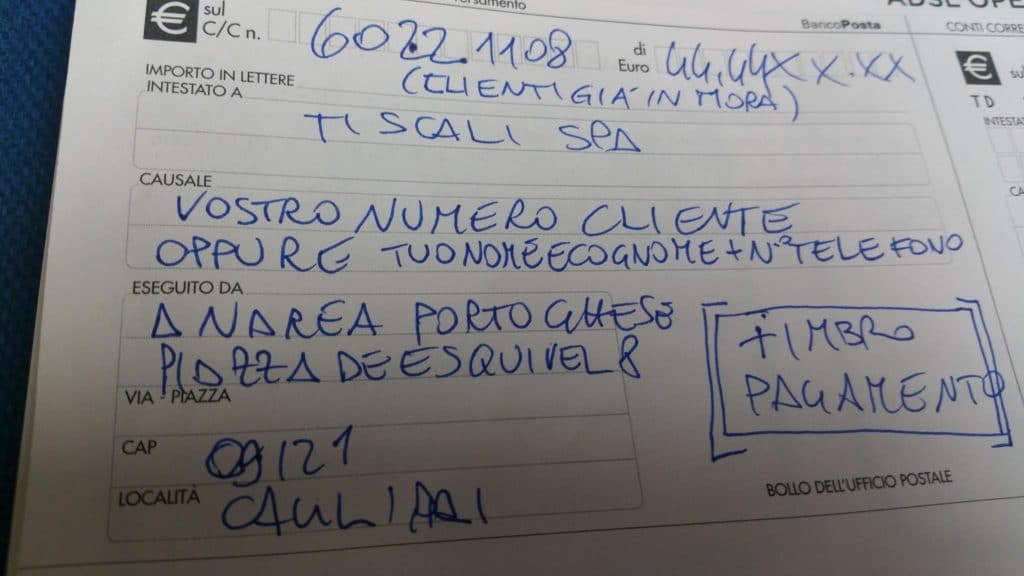 BancoPosta
CONTI CORRE
€ sul C/C n. 6022.1108 di Euro 44,44XXX.XX
IMPORTO IN LETTERE (CLIENTI GIÀ IN MORA)
INTESTATO A
TISCALI SPA
CAUSALE
VOSTRO NUMERO CLIENTE
OPPURE TUO NOME E COGNOME + N° TELEFONO
ESEGUITO DA
ANDREA PORTOGHESE
PIAZZA DE ESQUIVEL 8
VIA - PIAZZA
CAP 09121
LOCALITÀ CAGLIARI
TIMBRO
PAGAMENTO
BOLLO DELL'UFFICIO POSTALE
€
TD
INTESTA